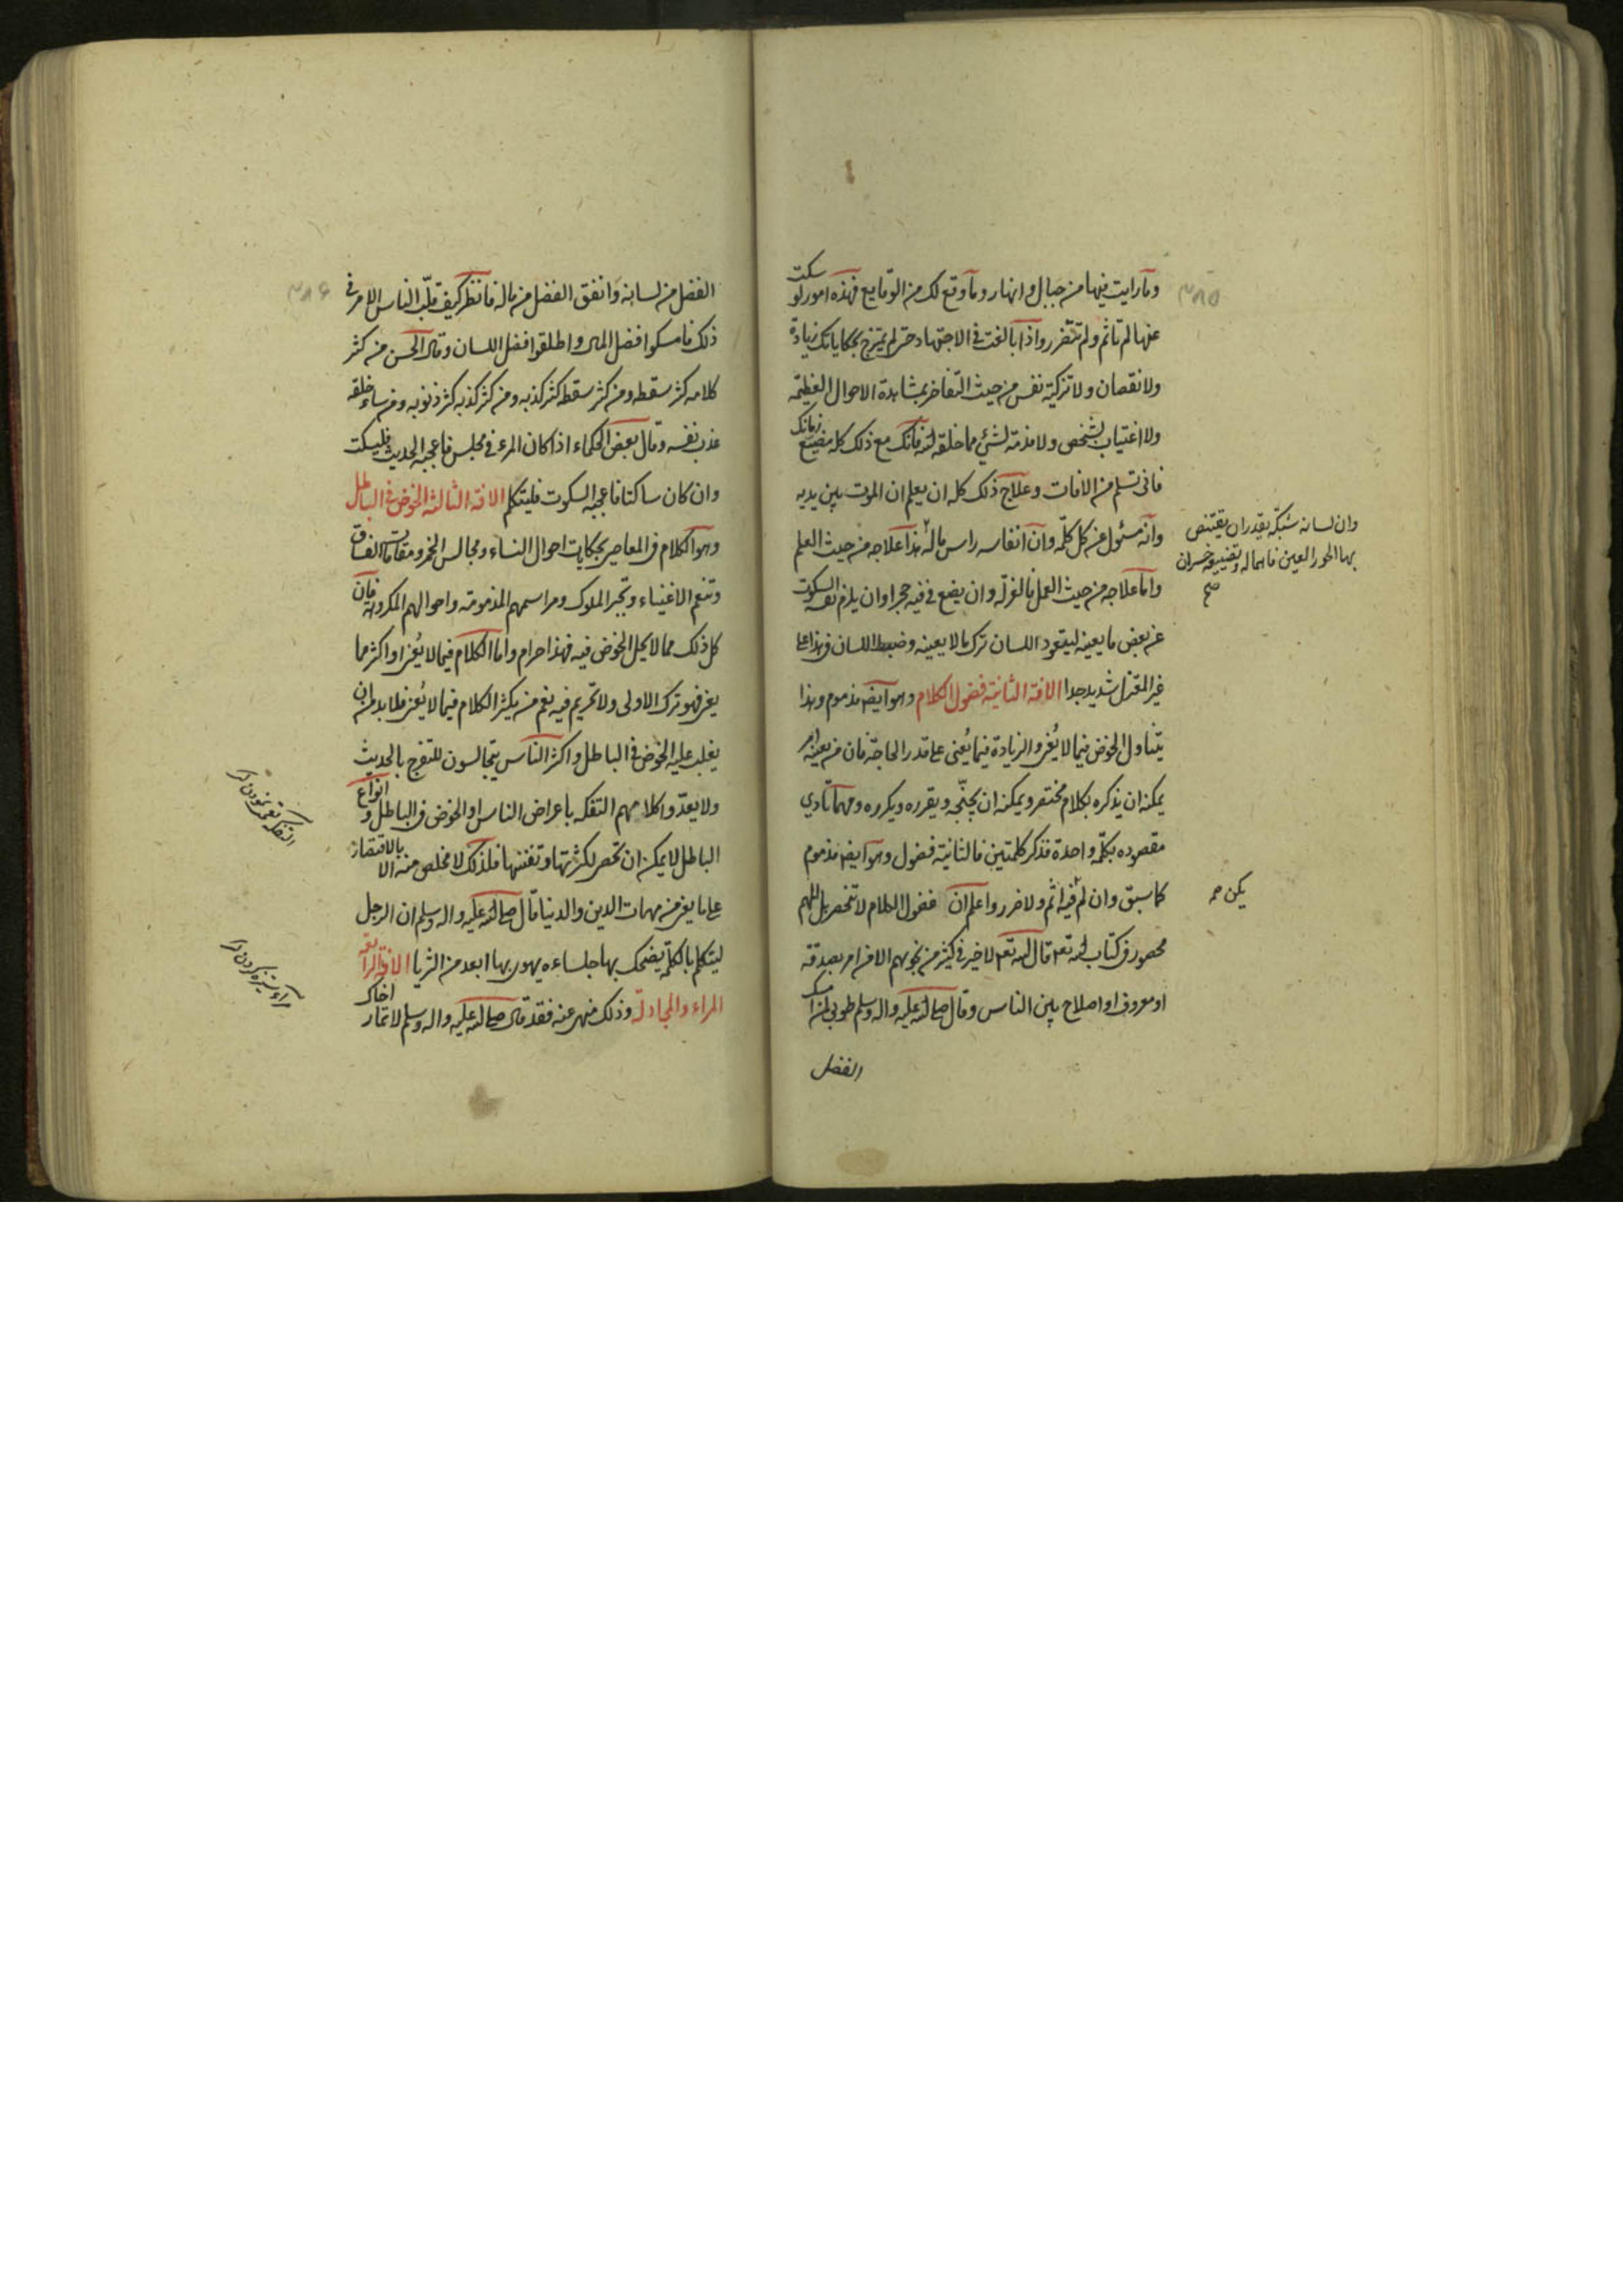 ٣٨٥
وما رايت فيها من جبال وانهار وما وقع لك من الوقايع فهذه امور لو سكت
عنها لم تاثم ولم تتضرر واذا بالغت في الاجتهاد حتى لم يمتزج بحكاياتك زيادة
ولا نقصان ولا تزكية نفس من حيث التفاخر بمشاهدة الاحوال العظيمة
ولا اغتياب لشخص ولا مذمة لشئ مما خلقه الله فانك مع ذلك كله مضيع زمانك
فانى تسلم من الافات وعلاج ذلك كله ان يعلم ان الموت بين يديه
وانه مسئول عن كل كلمة وان انفاسه راس ماله هذا علاجه من حيث العلم
وان لسانه شبكة يقدر ان يقتنص
بها الحور العين فاهماله وتضييعه خسران
صح
واما علاجه من حيث العمل فالعزلة وان يضع في فيه حجرا وان يلزم نفسه السكوت
عن بعض ما يعينه ليتعود اللسان ترك ما لا يعينه وضبط اللسان في هذا على
غير المعتزل شديد جدا الافة الثانية فضول الكلام وهو ايضا مذموم وهذا
يتناول الخوض فيما لا يعنى والزيادة فيما يعنى على قدر الحاجة فان من يعينه امر
يمكنه ان يذكره بكلام مختصر ويمكنه ان يجنّحه ويقرره ويكرره ومهما تادى
مقصوده بكلمة واحدة فذكر كلمتين فالثانية فضول وهو ايضا مذموم
كما سبق وان لم فيه اثم ولا ضرر واعلم ان فضول الكلام لا تنحصر بل المهم
يكن صح
محصور في كتاب الله تع قال الله تع لا خير في كثير من نجويهم الا من امر بصدقة
او معروف او اصلاح بين الناس وقال صلى الله عليه واله وسلم طوبى لمن امسك
الفضل
٣٨٦
الفضل من لسانه وانفق الفضل من ماله فانظر كيف قلّب الناس الامر في
ذلك فامسكوا فضل المال واطلقوا فضل اللسان وقال الحسن من كثر
كلامه كثر سقطه ومن كثر سقطه كثر كذبه ومن كثر كذبه كثر ذنوبه ومن ساء خلقه
عذب نفسه وقال بعض الحكماء اذا كان المرء في مجلس فاعجبه الحديث فليسكت
وان كان ساكتا فاعجبه السكوت فليتكلم الافة الثالثة الخوض في الباطل
وهو الكلام في المعاصى بحكايات احوال النساء ومجالس الخمر ومقامات الفساق
وتنعم الاغنياء وتجبر الملوك ومراسمهم المذمومة واحوالهم المكروهة فان
كل ذلك مما لا يحل الخوض فيه فهذا حرام واما الكلام فيما لا يعنى او اكثر مما
يعنى فهو ترك الاولى ولا تحريم فيه نعم من يكثر الكلام فيما لا يعنى فلا بد من ان
يغلب عليه الخوض في الباطل واكثر الناس يتجالسون للتفرج بالحديث
ولا يعدوا كلامهم التفكه باعراض الناس او الخوض في الباطل وانواع
الباطل لا يمكن ان تحصر لكثرتها وتفننها فلذلك لا مخلص منه الا بالاقتصار
على ما يعنى من مهمات الدين والدنيا قال صلى الله عليه واله وسلم ان الرجل
ليتكلم بالكلمة يضحك بها جلساءه يهوى بها ابعد من الثريا الافة الرابعة
المراء والمجادلة وذلك منهى عنه فقد قال صلى الله عليه واله وسلم لا تمار اخاك